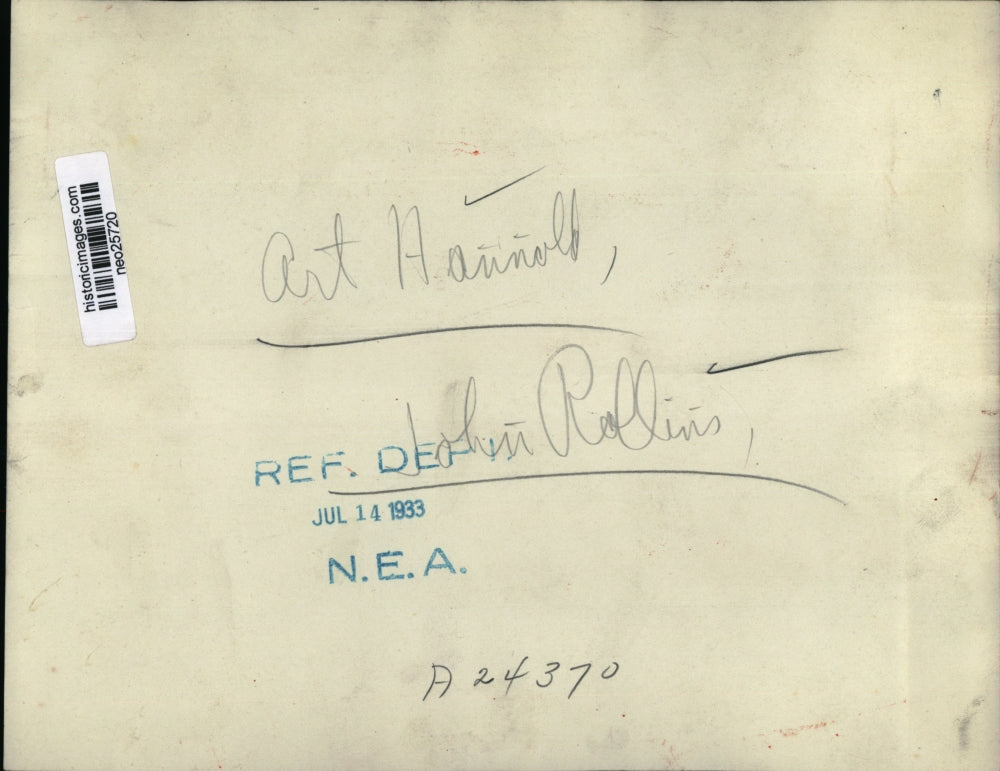 historicimages.com
neo25720
Art Hannold,
John Rollins,
REF. DEPT.
JUL 14 1933
N.E.A.
A 24370